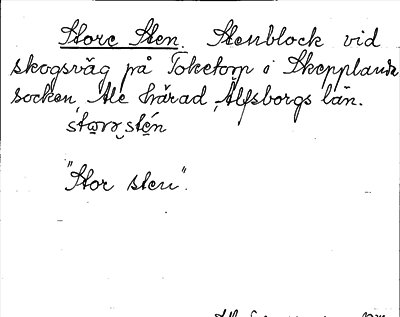 Store Sten. Stenblock vid
skogsväg på Toketorp i Skepplanda
socken, Ale härad, Älfsborgs län.
"Stor sten".